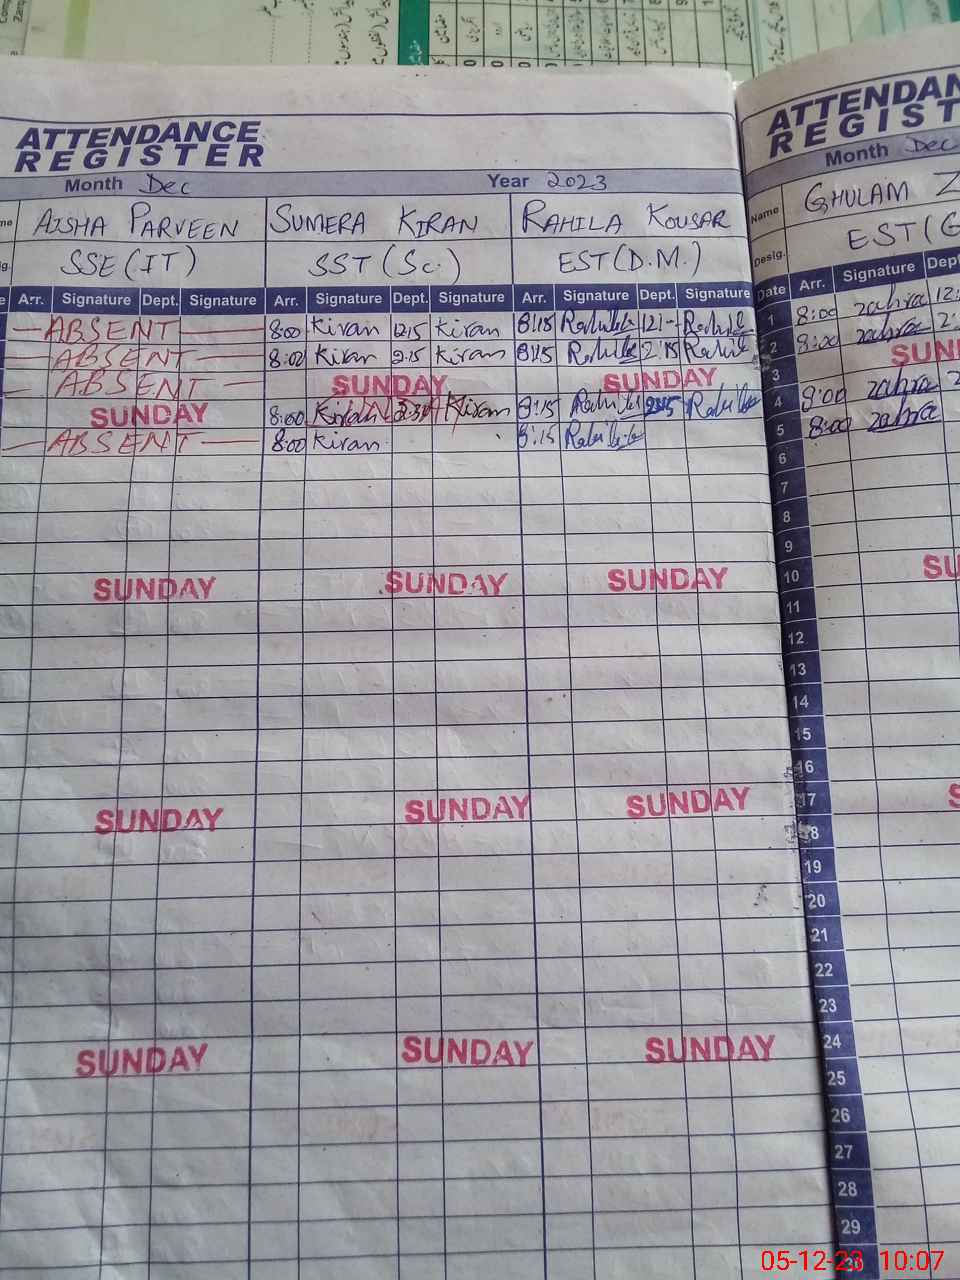 ATTENDANCE
REGISTER
Month Dec Year 2023
AISHA PARVEEN SUMERA KIRAN RAHILA KOUSAR
SSE (IT) SST (Sc.) EST (D.M.)
Arr. Signature Dept. Signature Arr. Signature Dept. Signature Arr. Signature Dept. Signature
ABSENT 8:00 Kiran 12:15 Kiran 8:15
ABSENT 8:00 Kiran 2:15 Kiran 8:15 2:15
ABSENT SUNDAY SUNDAY
SUNDAY 8:00 Kiran Kiran 8:15 2:45
ABSENT 8:00 Kiran 8:15
SUNDAY SUNDAY SUNDAY
SUNDAY SUNDAY SUNDAY
SUNDAY SUNDAY SUNDAY
ATTENDAN
REGIST
Month Dec
Name GHULAM Z
Desig. EST (G
Date Arr. Signature Dept
1 8:00 zahra 12:
2 8:00 zahra 2:
3 SUN
4 8:00 zahra 2
5 8:00 zahra
6
7
8
9
10 SU
11
12
13
14
15
16
17 S
18
19
20
21
22
23
24
25
26
27
28
29
30
05-12-23 10:07